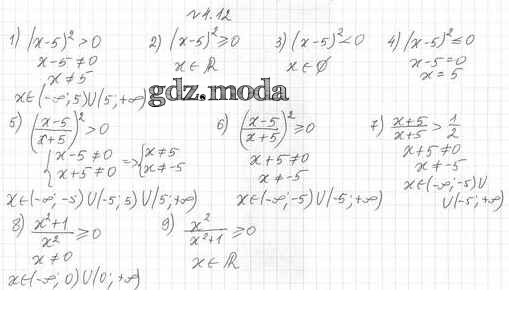 №4.12
1) (x-5)² > 0
x-5 ≠ 0
x ≠ 5
x∈(-∞; 5)∪(5; +∞)
2) (x-5)² ≥ 0
x ∈ ℝ
3) (x-5)² < 0
x ∈ ∅
4) (x-5)² ≤ 0
x-5 = 0
x = 5
gdz.moda
5) ((x-5)/(x+5))² > 0
{x-5 ≠ 0 => {x ≠ 5
{x+5 ≠ 0 {x ≠ -5
x∈(-∞; -5)∪(-5; 5)∪(5; +∞)
6) ((x-5)/(x+5))² ≥ 0
x+5 ≠ 0
x ≠ -5
x∈(-∞; -5)∪(-5; +∞)
7) (x+5)/(x+5) > 1/2
x+5 ≠ 0
x ≠ -5
x∈(-∞; -5)∪
∪(-5; +∞)
8) (x²+1)/x² ≥ 0
x ≠ 0
x∈(-∞; 0)∪(0; +∞)
9) x²/(x²+1) ≥ 0
x ∈ ℝ